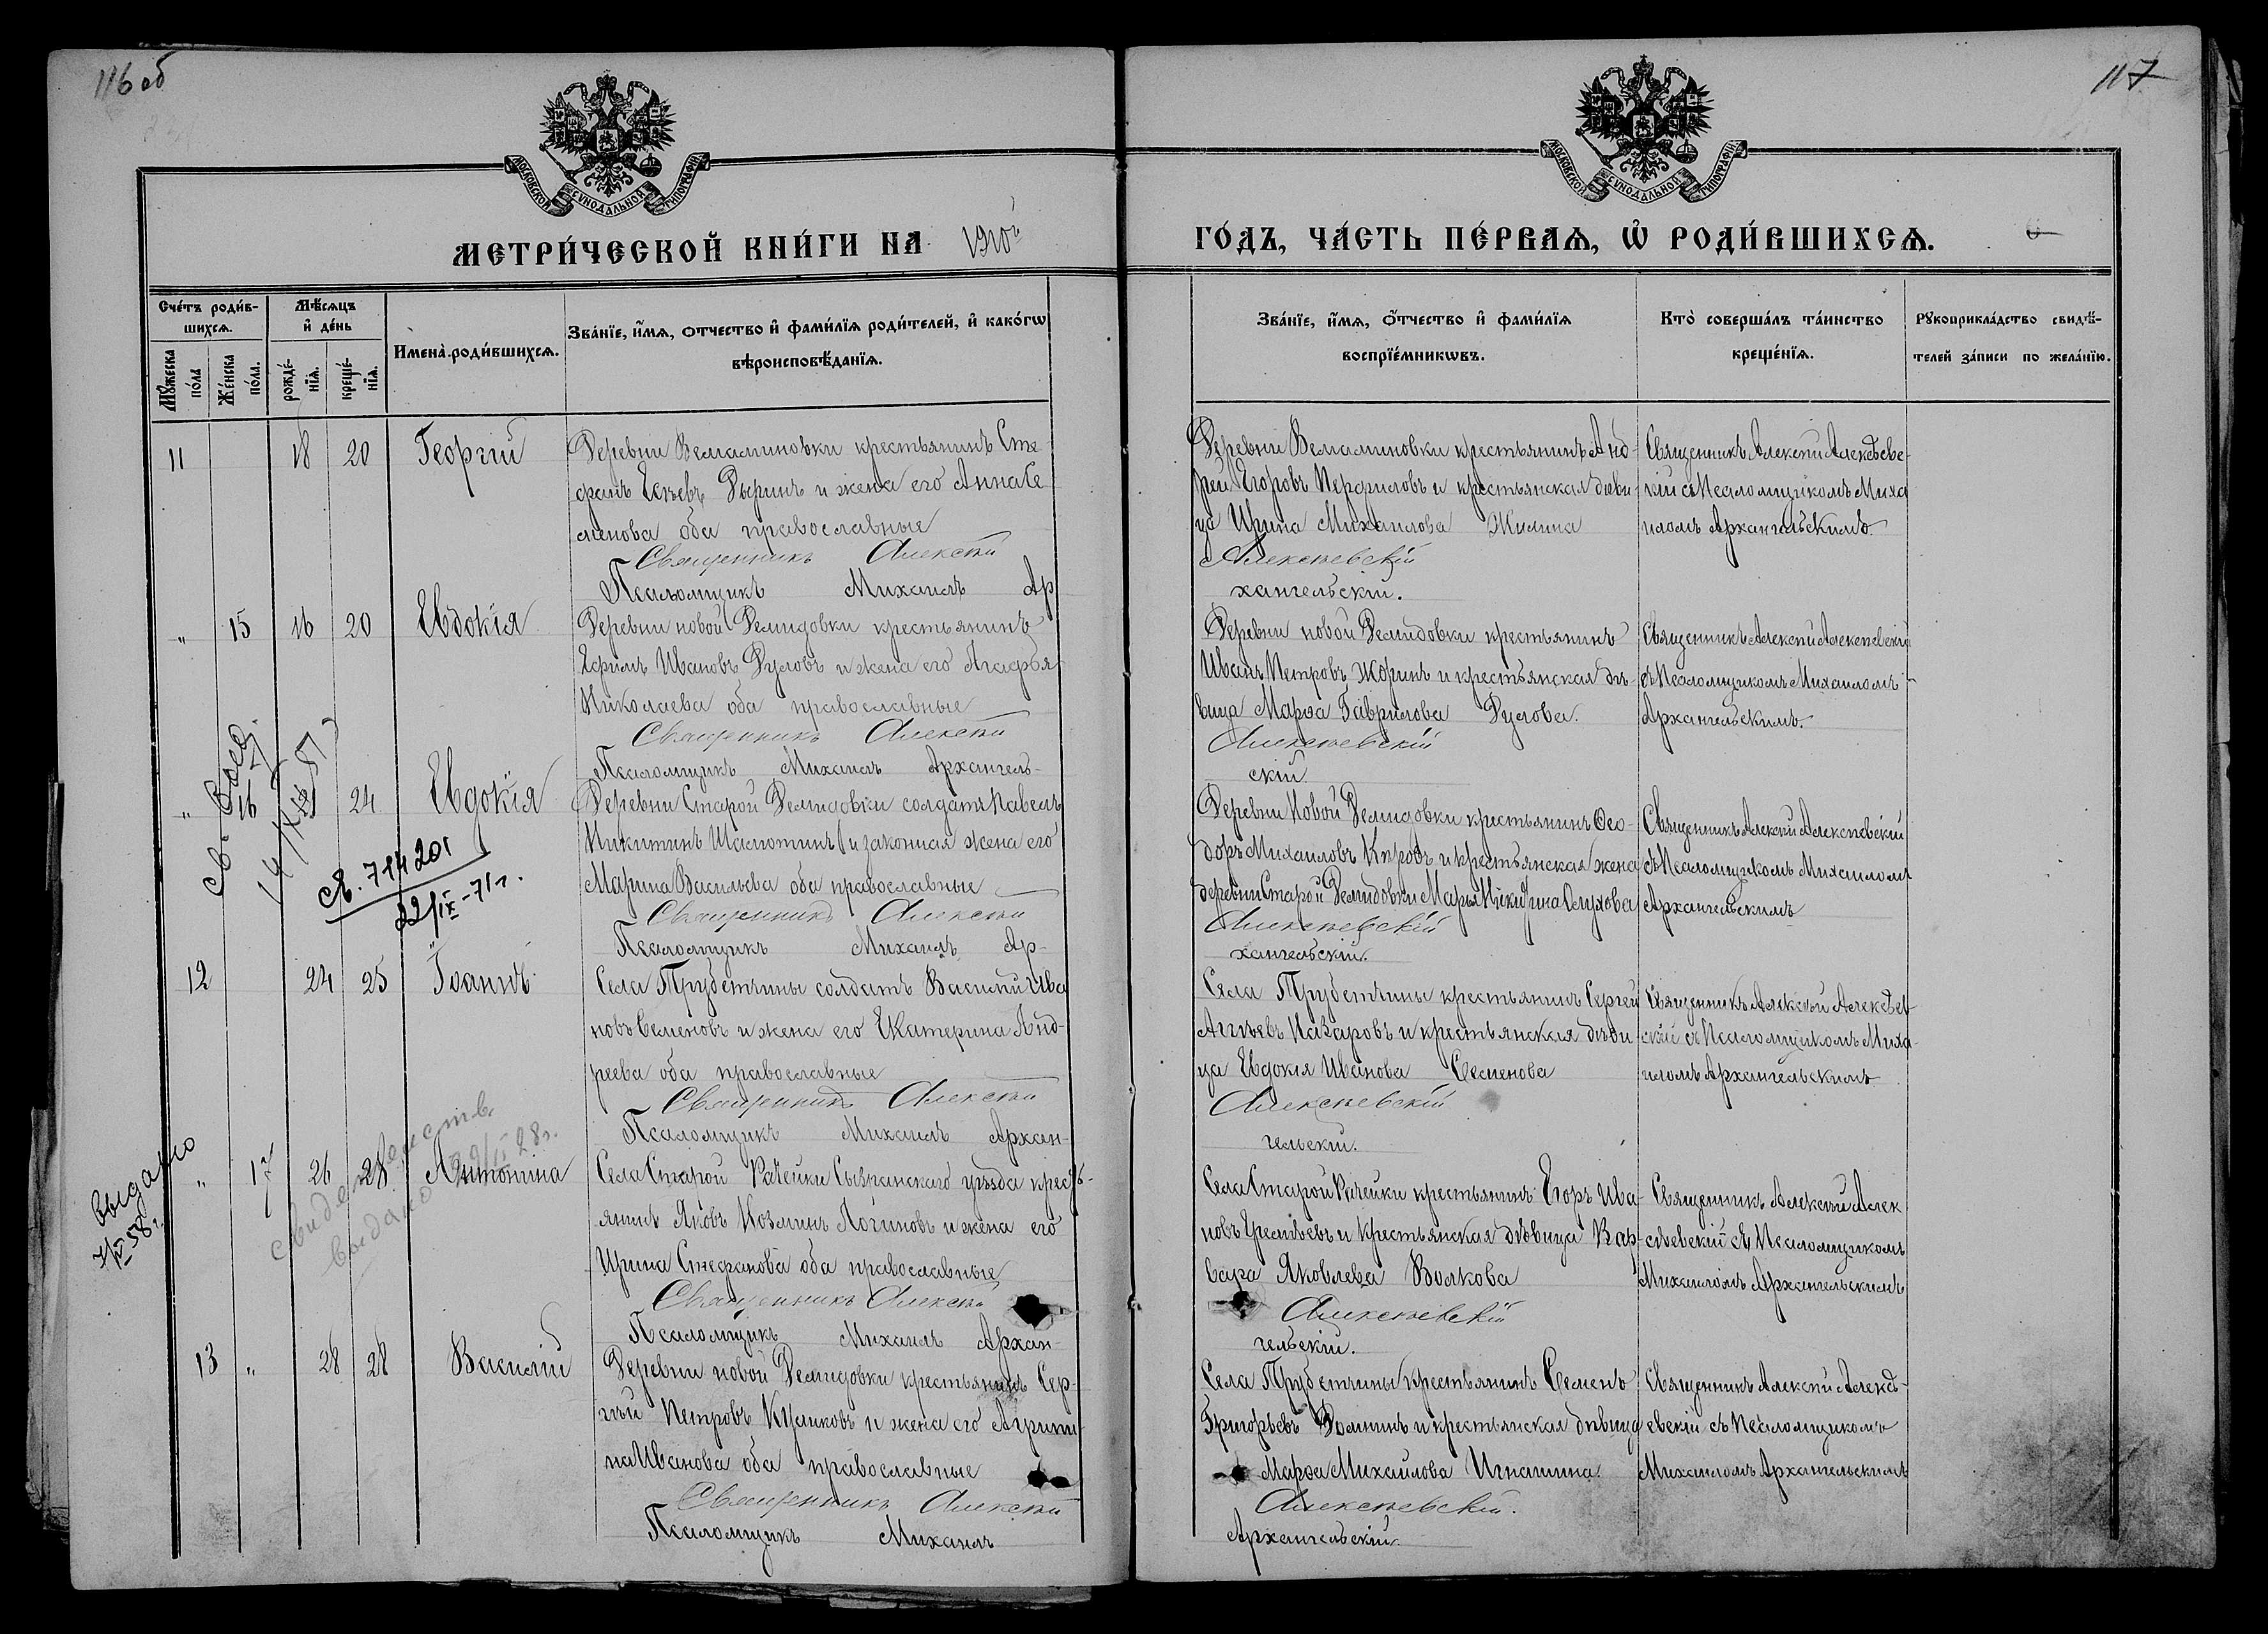 116 об
117
МОСКОВСКОЙ СѴНОДАЛЬНОЙ ТИПОГРАФІИ
МОСКОВСКОЙ СѴНОДАЛЬНОЙ ТИПОГРАФІИ
МЕТРИ́ЧЕСКОЙ КНИ́ГИ НА 1910й
ГО́ДЪ, ЧА́СТЬ ПЕ́РВАѦ, Ѡ҆ РОДИ́ВШИХСѦ.
Сче́тъ роди́в-
шихсѧ.
Мꙋ́жеска по́ла
Же́нска по́ла.
Мѣ́сѧцъ
и҆ де́нь
рожде́-
нїѧ.
креще́-
нїѧ.
Имена̀ роди́вшихсѧ.
Зва́нїе, и҆́мѧ, ѻ҆́тчество и҆ фами́лїѧ роди́телей, и҆ како́гѡ
вѣроисповѣ́данїѧ.
Зва́нїе, и҆́мѧ, ѻ҆́тчество и҆ фами́лїѧ
воспрїе́мникѡвъ.
Кто̀ соверша́лъ та́инство
креще́нїѧ.
Рꙋкоприкла́дство свидѣ́-
телей за́писи по жела́нїю.
11 18 20 Георгій
Деревни Вельяминовки крестьянинъ Сте-
фанъ Дыринъ и жена его Анна Се
менова оба православные
Священникъ Алексѣй
Псаломщикъ Михаилъ Ар
Деревни Вельяминовки крестьянинъ Анд-
рей Егоровъ Перфиловъ и крестьянская дѣви
ца Ирина Михаилова Жилина
Алексѣевскій
хангельскій.
Священникъ Алексѣй Алексѣевс-
кій съ Псаломщикомъ Миха
иломъ Архангельскимъ.
" 15 16 20 Евдокія
Деревни новой Демидовки крестьянинъ
Ефимъ Ивановъ Дуловъ и жена его Агафья
Николаева оба православные
Священникъ Алексѣй
Псаломщикъ Михаилъ Архангель-
Деревни новой Демидовки крестьянинъ
Иванъ Петровъ Жоринъ и крестьянская дѣ-
вица Марѳа Гаврилова Дулова.
Алексѣевскій
скій.
Священникъ Алексѣй Алексѣевскій
съ Псаломщикомъ Михаиломъ
Архангельскимъ.
" 16 24 Евдокія
св. 714201
22/IX-71г.
Деревни Старой Демидовки солдатъ Павелъ
Никитинъ и законная жена его
Марина Васильева оба православные
Священникъ Алексѣй
Псаломщикъ Михаилъ Ар-
Деревни Новой Демидовки крестьянинъ Ѳео-
доръ Михаиловъ и крестьянская жена
деревни Старой Демидовки Марья
Алексѣевскій
хангельскій.
Священникъ Алексѣй Алексѣевскій
съ Псаломщикомъ Михаиломъ
Архангельскимъ
12 24 25 Іоаннъ
Села Трубетчины солдатъ Василій Ива
новъ Семеновъ и жена его Екатерина Анд-
реева оба православные
Священникъ Алексѣй
Псаломщикъ Михаилъ Архан-
Села Трубетчины крестьянинъ Сергей
Назаровъ и крестьянская дѣви
ца Евдокія Иванова Семенова
Алексѣевскій
гельскій.
Священникъ Алексѣй Алексѣев-
скій съ Псаломщикомъ Миха-
иломъ Архангельскимъ
Выдано
" 17 26 28 Антонина
свидетельств
выдано
Села Старой Рачейки Сызранскаго уѣзда кресть-
янинъ Яковъ Козминъ Логиновъ и жена его
Ирина Стефанова оба православные
Священникъ Алексѣй
Псаломщикъ Михаилъ Архан-
Села Старой Рачейки крестьянинъ Егоръ Ива-
новъ Еремѣевъ и крестьянская дѣвица Вар-
вара Яковлева Волкова
Алексѣевскій
гельскій.
Священникъ Алексѣй Алек
сѣевскій съ Псаломщикомъ
Михаиломъ Архангельскимъ
13 " 28 28 Василій
Деревни новой Демидовки крестьянинъ Сер-
гѣй Петровъ Куликовъ и жена его Агрипи
на Иванова оба православные
Священникъ Алексѣй
Псаломщикъ Михаилъ
Села Трубетчины крестьянинъ Семенъ
Григорьевъ и крестьянская дѣвица
Марѳа Михаилова Игнашина.
Алексѣевскій.
Архангельскій.
Священникъ Алексѣй Алексѣ-
евскій съ Псаломщикомъ
Михаиломъ Архангельскимъ